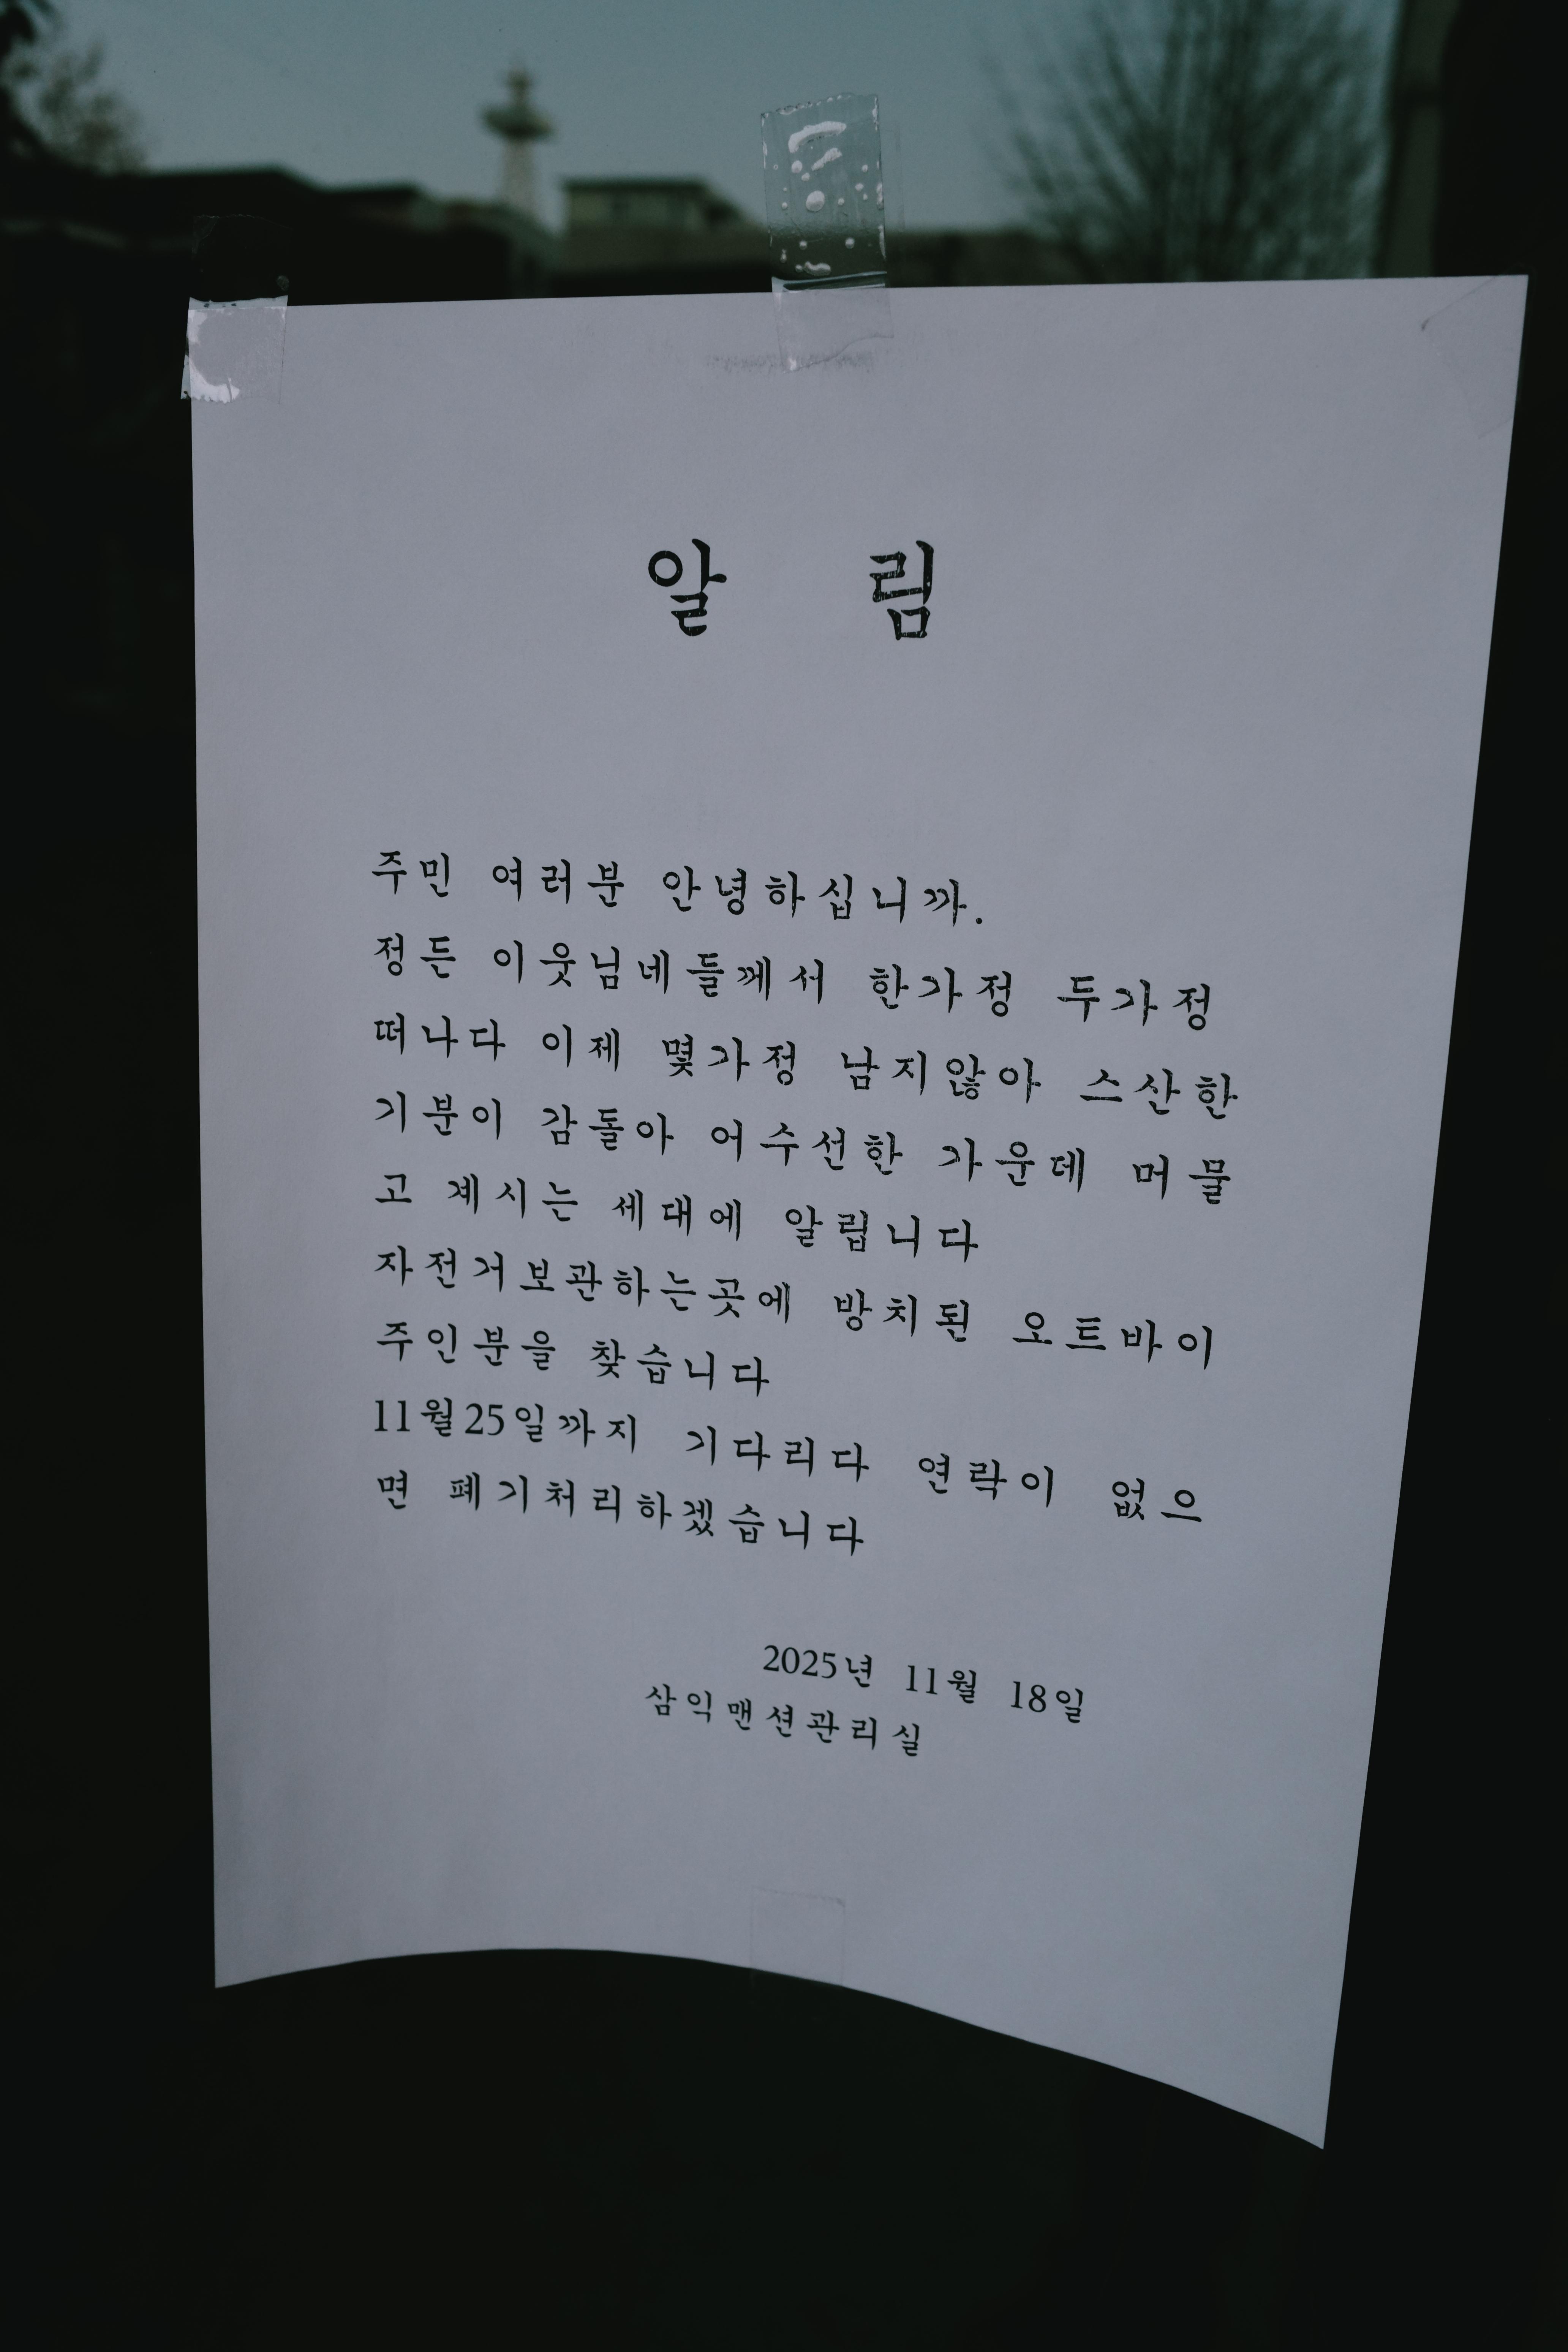 알 림
주민 여러분 안녕하십니까.
정든 이웃님네들께서 한가정 두가정
떠나다 이제 몇가정 남지않아 스산한
기분이 감돌아 어수선한 가운데 머물
고 계시는 세대에 알립니다
자전거보관하는곳에 방치된 오트바이
주인분을 찾습니다
11월25일까지 기다리다 연락이 없으
면 폐기처리하겠습니다
2025년 11월 18일
삼익맨션관리실